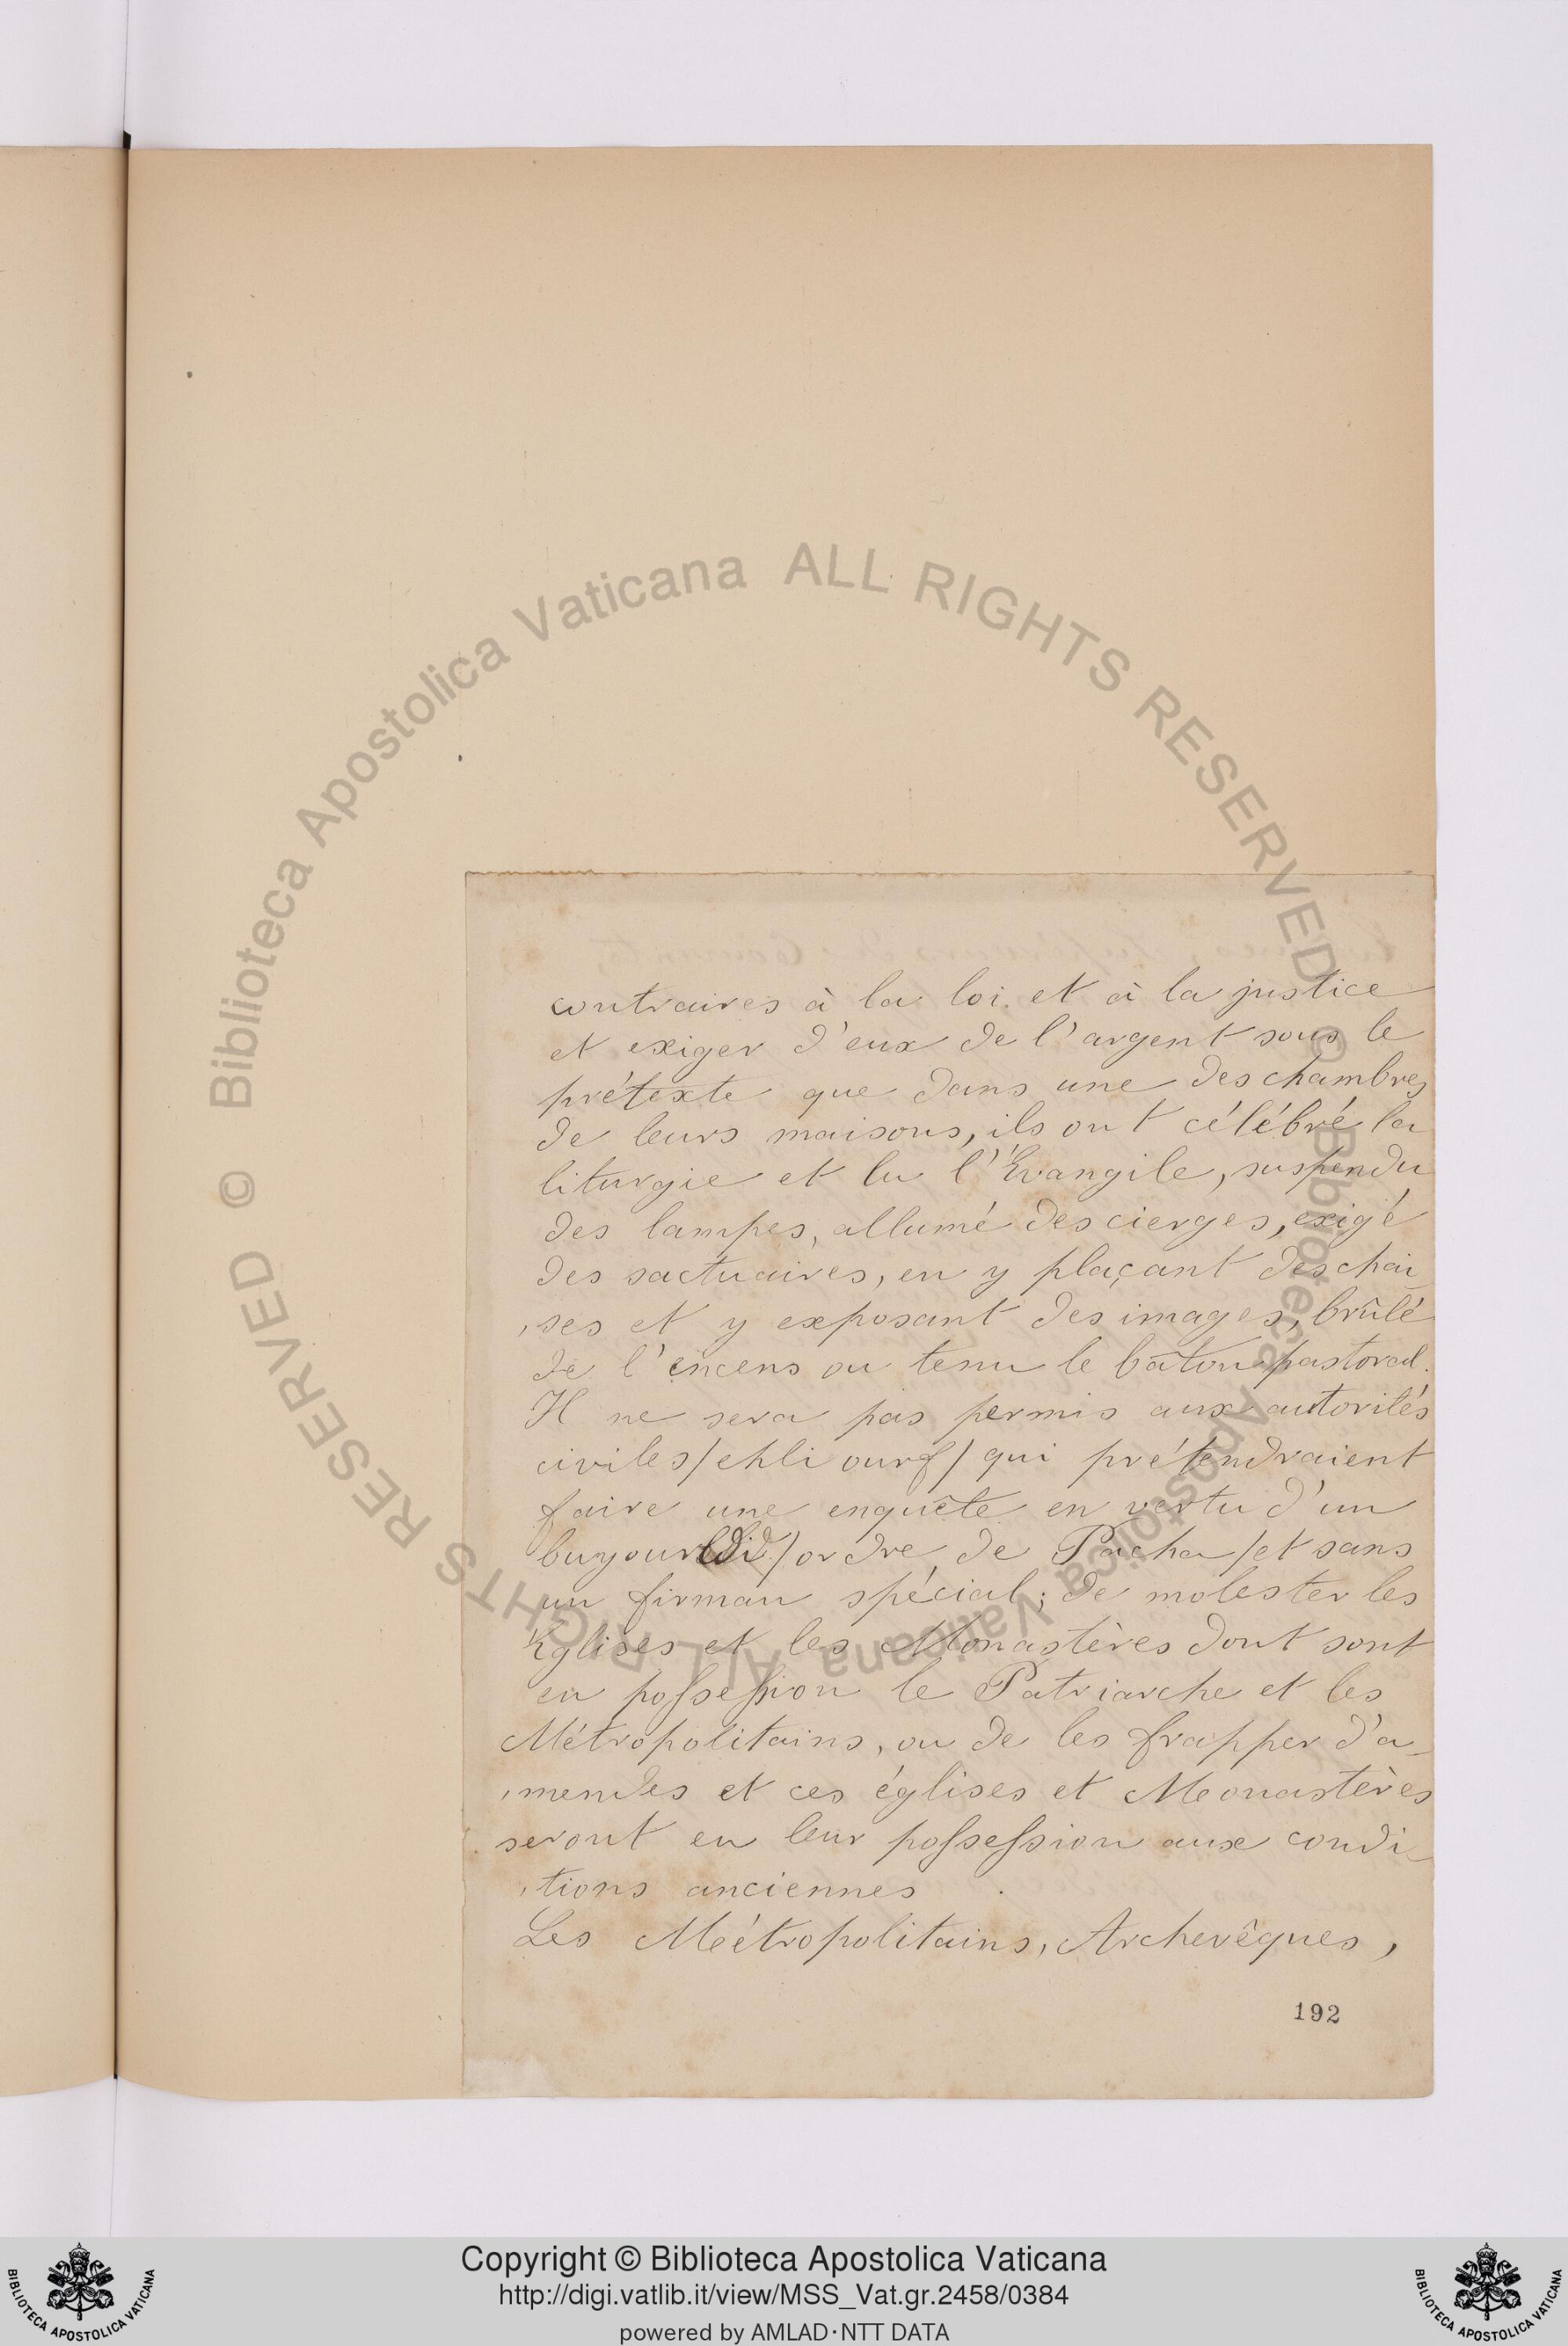 contraires à la loi et à la justice
et exiger d'eux de l'argent sous le
prétexte que dans une des chambres
de leurs maisons, ils ont célébré la
liturgie et lu l'Evangile, suspendu
des lampes, allumé des cierges, exigé
des sactuaires, en y plaçant des chai
,ses et y exposant des images, brûlé
de l'encens ou tenu le bâton pastoral.
Il ne sera pas permis aux autorités
civiles/ehli ourf/qui prétendraient
faire une enquête en vertu d'un
buyourldi/ordre de Pacha/et sans
un firman spécial; de molester les
Eglises et les Monastères dont sont
en possession le Patriarche et les
Métropolitains, ou de les frapper d'a-
,mendes et ces églises et Monastères
seront en leur possession aux condi-
,tions anciennes.
Les Métropolitains, Archevêques,
192
© Biblioteca Apostolica Vaticana ALL RIGHTS RESERVED
© Biblioteca Apostolica Vaticana ALL RIGHTS RESERVED
Copyright © Biblioteca Apostolica Vaticana
http://digi.vatlib.it/view/MSS_Vat.gr.2458/0384
powered by AMLAD·NTT DATA
BIBLIOTECA APOSTOLICA VATICANA
BIBLIOTECA APOSTOLICA VATICANA